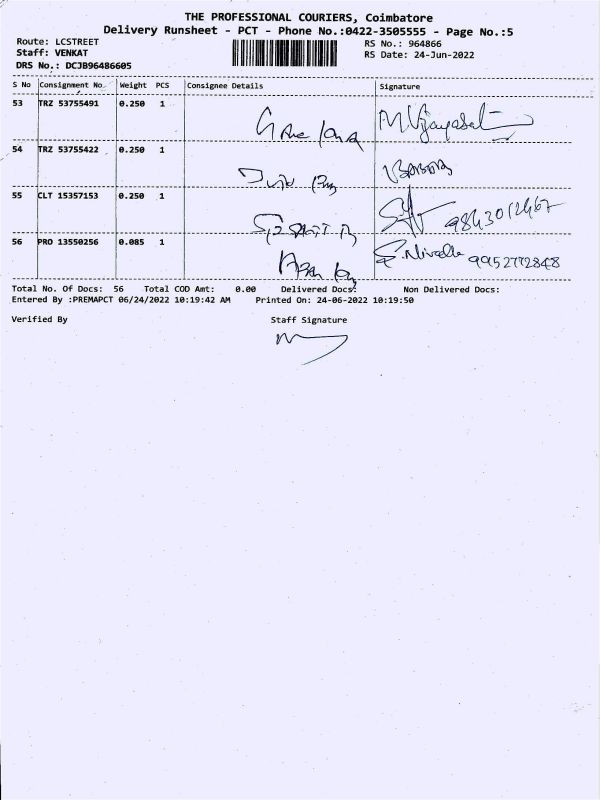 THE PROFESSIONAL COURIERS, Coimbatore
Delivery Runsheet - PCT - Phone No.:0422-3505555 - Page No.:5
Route: LCSTREET
Staff: VENKAT
DRS No.: DCJB96486605
RS No.: 964866
RS Date: 24-Jun-2022
S No Consignment No. Weight PCS Consignee Details Signature
53 TRZ 53755491 0.250 1
54 TRZ 53755422 0.250 1
55 CLT 15357153 0.250 1 9843012467
56 PRO 13550256 0.085 1 9952772848
Total No. Of Docs: 56 Total COD Amt: 0.00 Delivered Docs: Non Delivered Docs:
Entered By :PREMAPCT 06/24/2022 10:19:42 AM Printed On: 24-06-2022 10:19:50
Verified By Staff Signature